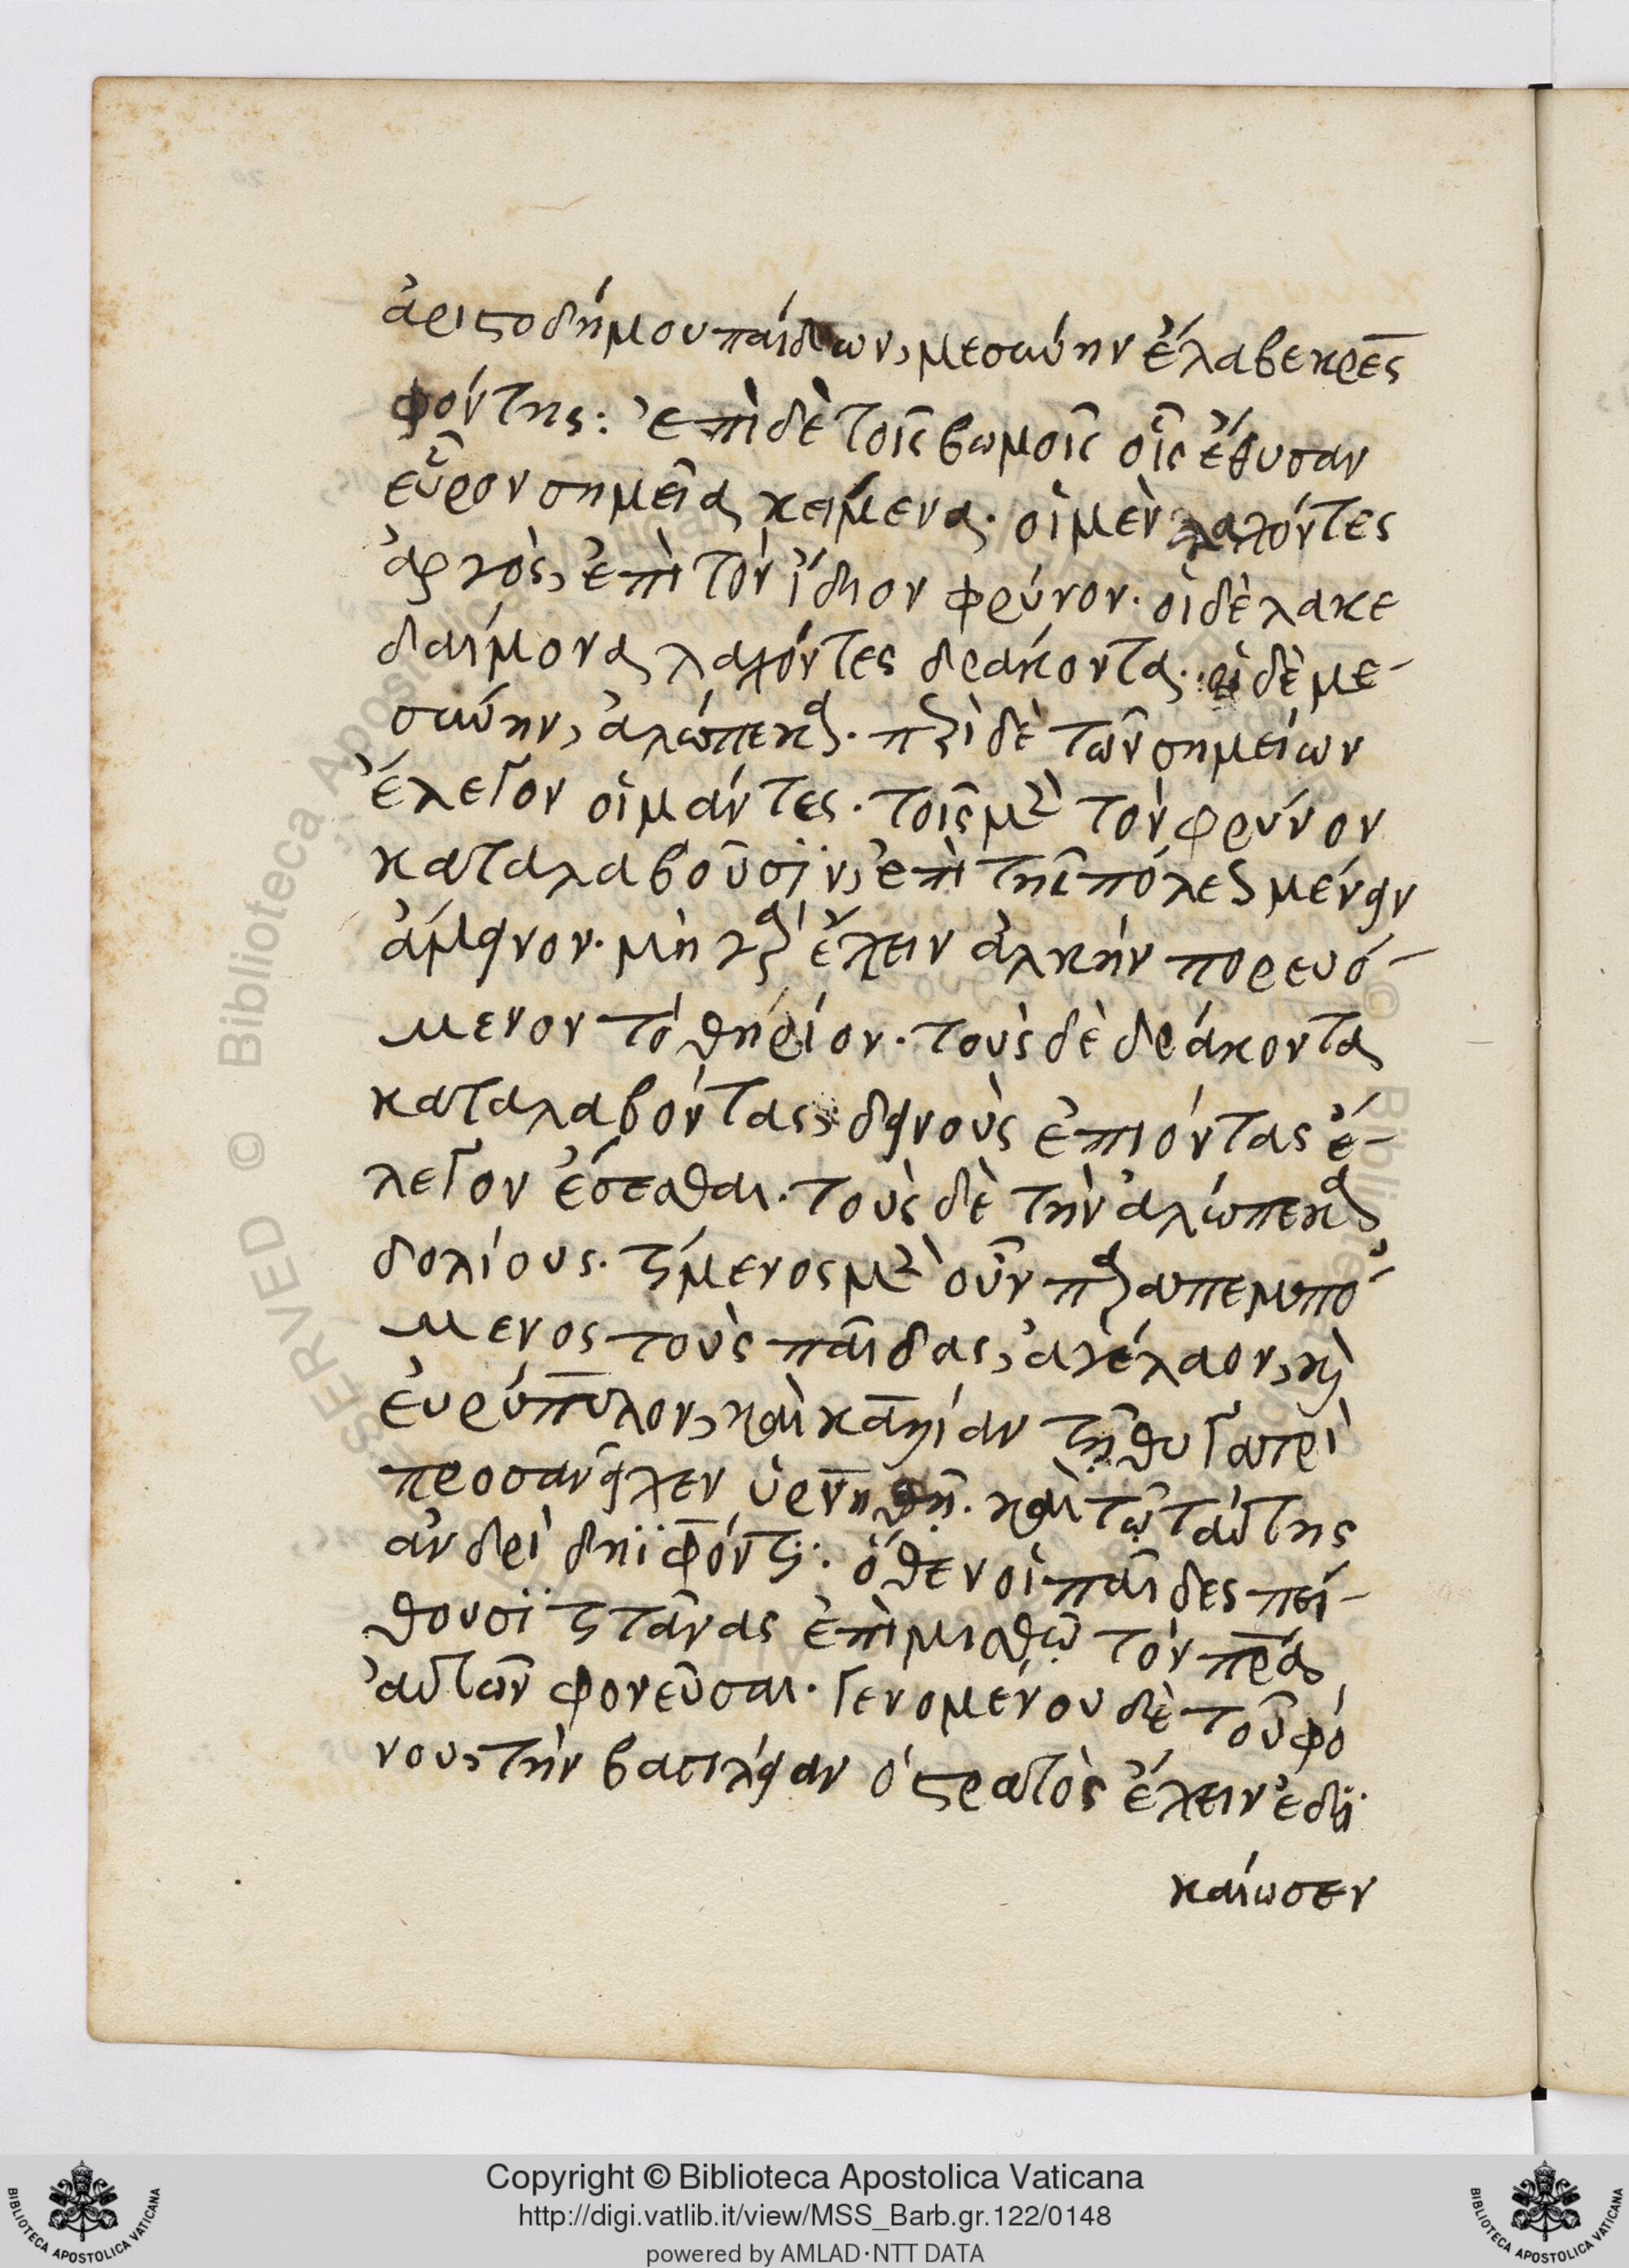 ἀριστοδήμου παίδων, μεσσήνην ἔλαβε κρες
φόντης: ἐπὶ δὲ τοῖς βωμοῖς οἷς ἔθυσαν
εὗρον σημεῖα κείμενα· οἱ μὲν λαχόντες
ἀργὸς, ἐπὶ τὸν ἴδιον φρύνον· οἱ δὲ λακε
δαίμονα λαχόντες δράκοντα· οἱ δὲ με-
σσήνην, ἀλώπεκα· περὶ δὲ τῶν σημείων
ἔλεγον οἱ μάντες· τοῖς μὲν τὸν φρύνον
καταλαβοῦσϊν, ἐπὶ τῆς πόλεως μένειν
ἄμεινον· μὴ γὰρ ἔχειν ἀλκὴν πορευό-
μενον τὸ θηρίον· τοὺς δὲ δράκοντα
καταλαβόντας, δεινοὺς ἐπιόντας ἔ-
λεγον ἔσεσθαι· τοὺς δὲ τὴν ἀλώπεκα
δολίους· τήμενος μὲν οὖν παραπεμπό-
μενος τοὺς παῖδας, ἀγέλαον, καὶ
ἐυρύπυλον, καὶ καλλίαν τῇ θυγατρὶ
προσανεῖχεν ὑρνηθῇ· καὶ τῷ ταύτης
ἀνδρὶ δηϊφόντῃ: ὅθεν οἱ παῖδες πεί-
θουσϊ τιτᾶνας ἐπὶ μισθῷ τὸν πρα
αὐτῶν φονεῦσαι· γενομένου δὲ τοῦ φό
νου, τὴν βασιλείαν ὁ στρατὸς ἔχειν ἐδι
καίωσεν
Copyright © Biblioteca Apostolica Vaticana
http://digi.vatlib.it/view/MSS_Barb.gr.122/0148
powered by AMLAD·NTT DATA